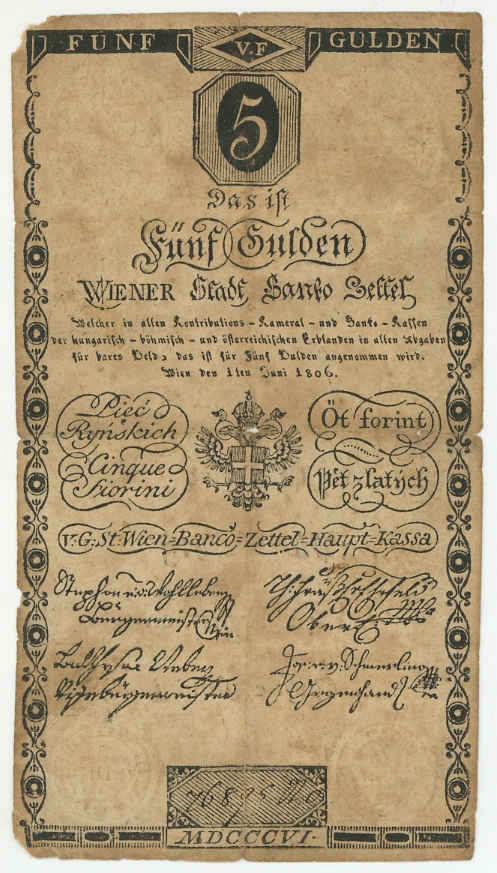 FÜNF V.F GULDEN
5
Das ist
Fünf Gulden
WIENER Stadt Banko Zettel
Welcher in allen Kontributions - Kameral - und Banko - Kassen
der hungarisch - böhmisch - und österreichischen Erblanden in allen Abgaben
für bares Geld, das ist für Fünf Gulden angenommen wird.
Wien den 1ten Juni 1806.
Pieć
Ryńskich
Öt forint
Cinque
Fiorini
Pět zlatých
V:G:St:Wien=Banco=Zettel=Haupt=Kassa
Stephan
Bürgermeister
Ober
Jos: v. Schmerling
MDCCCVI.